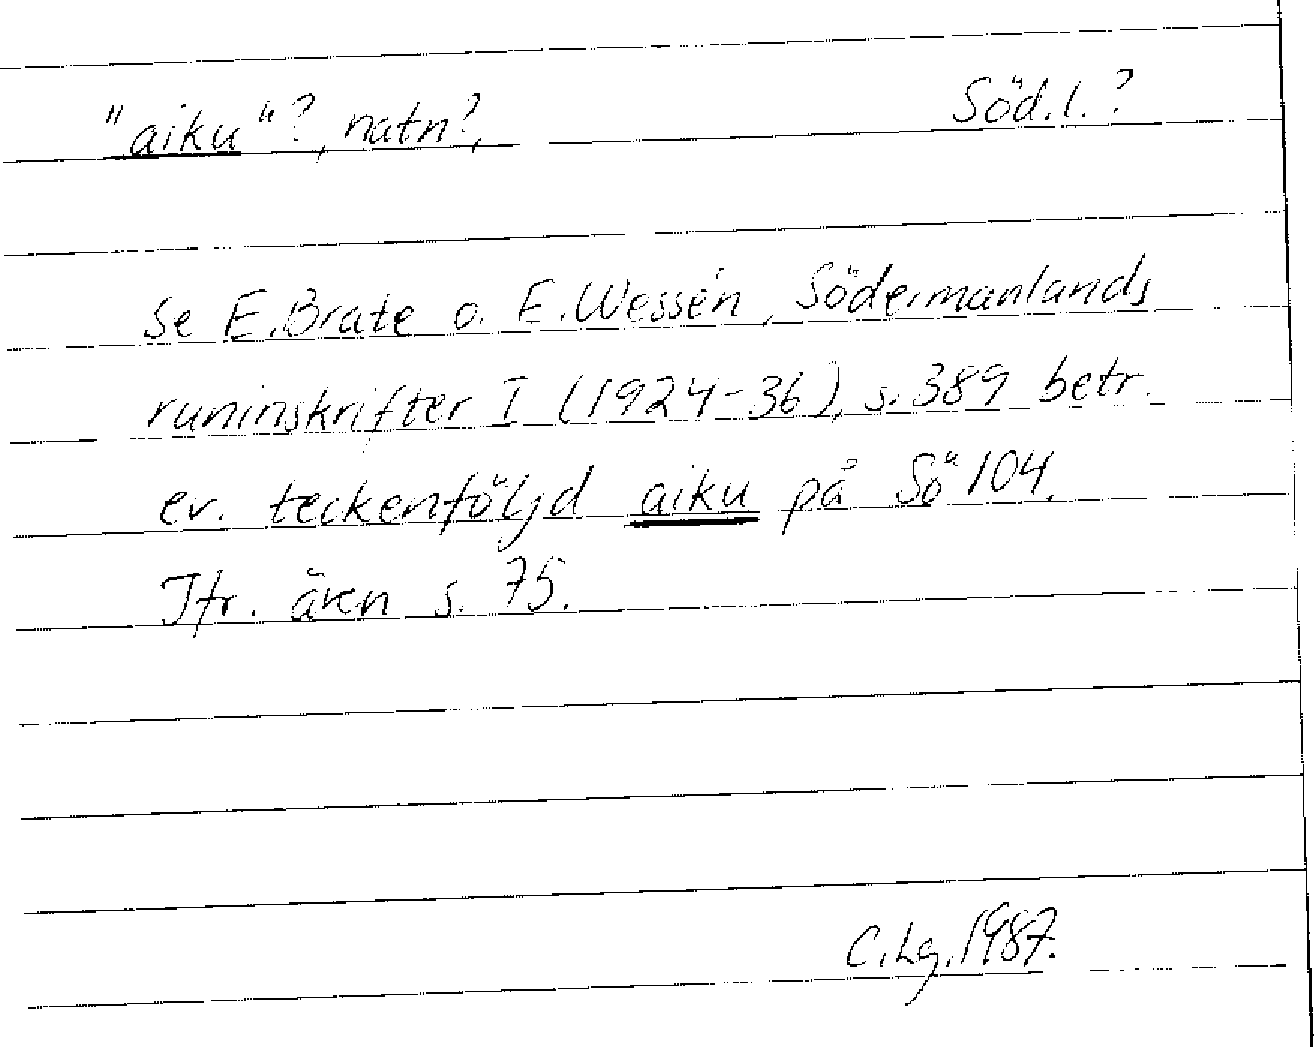 "aiku"?, natn?, Söd.l.?
Se E.Brate o. E.Wessén, Södermanlands
runinskrifter I (1924-36), s.389 betr.
ev. teckenföljd aiku på Sö 104.
Jfr. även s. 75.
C.Lg.1987.